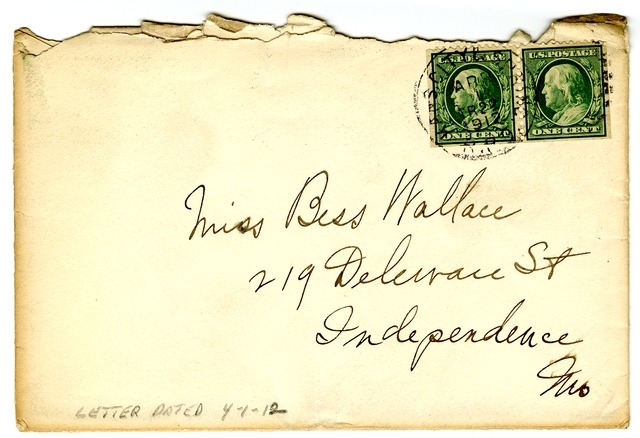 U.S. POSTAGE U.S. POSTAGE
ONE CENT ONE CENT
Miss Bess Wallace
219 Deleware St
Independence
Mo
LETTER DATED 4-1-12